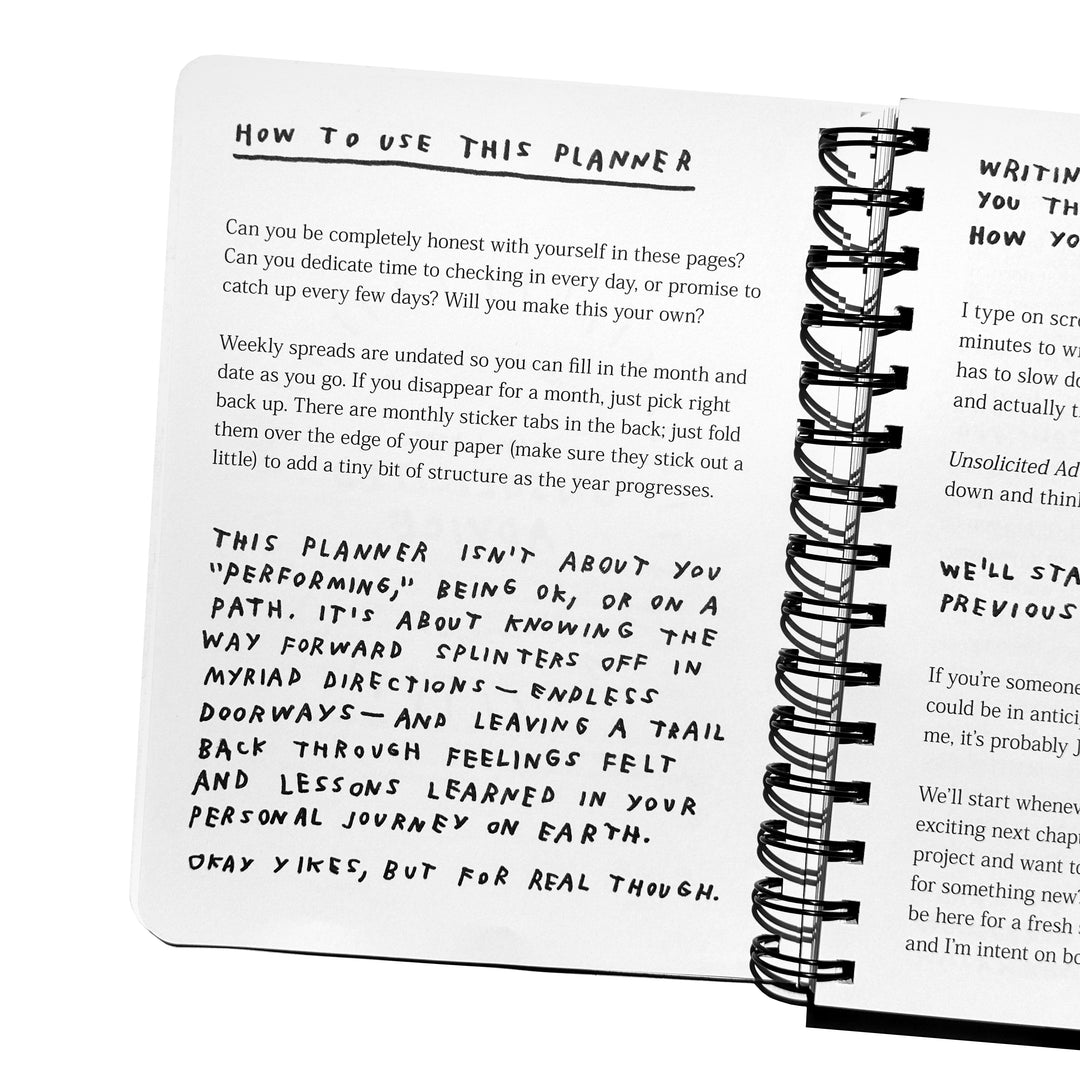 HOW TO USE THIS PLANNER
Can you be completely honest with yourself in these pages?
Can you dedicate time to checking in every day, or promise to
catch up every few days? Will you make this your own?
Weekly spreads are undated so you can fill in the month and
date as you go. If you disappear for a month, just pick right
back up. There are monthly sticker tabs in the back; just fold
them over the edge of your paper (make sure they stick out a
little) to add a tiny bit of structure as the year progresses.
THIS PLANNER ISN'T ABOUT YOU
"PERFORMING," BEING OK, OR ON A
PATH. IT'S ABOUT KNOWING THE
WAY FORWARD SPLINTERS OFF IN
MYRIAD DIRECTIONS — ENDLESS
DOORWAYS — AND LEAVING A TRAIL
BACK THROUGH FEELINGS FELT
AND LESSONS LEARNED IN YOUR
PERSONAL JOURNEY ON EARTH.
OKAY YIKES, BUT FOR REAL THOUGH.
YOU
HOW
I type on
minutes to
has to slow
and actually
Unsolicited
down and
WE'LL
PREVIOUS
If you're someone
could be in
me, it's probably
We'll start
exciting next
project and want to
for something new?
be here for a fresh
and I'm intent on